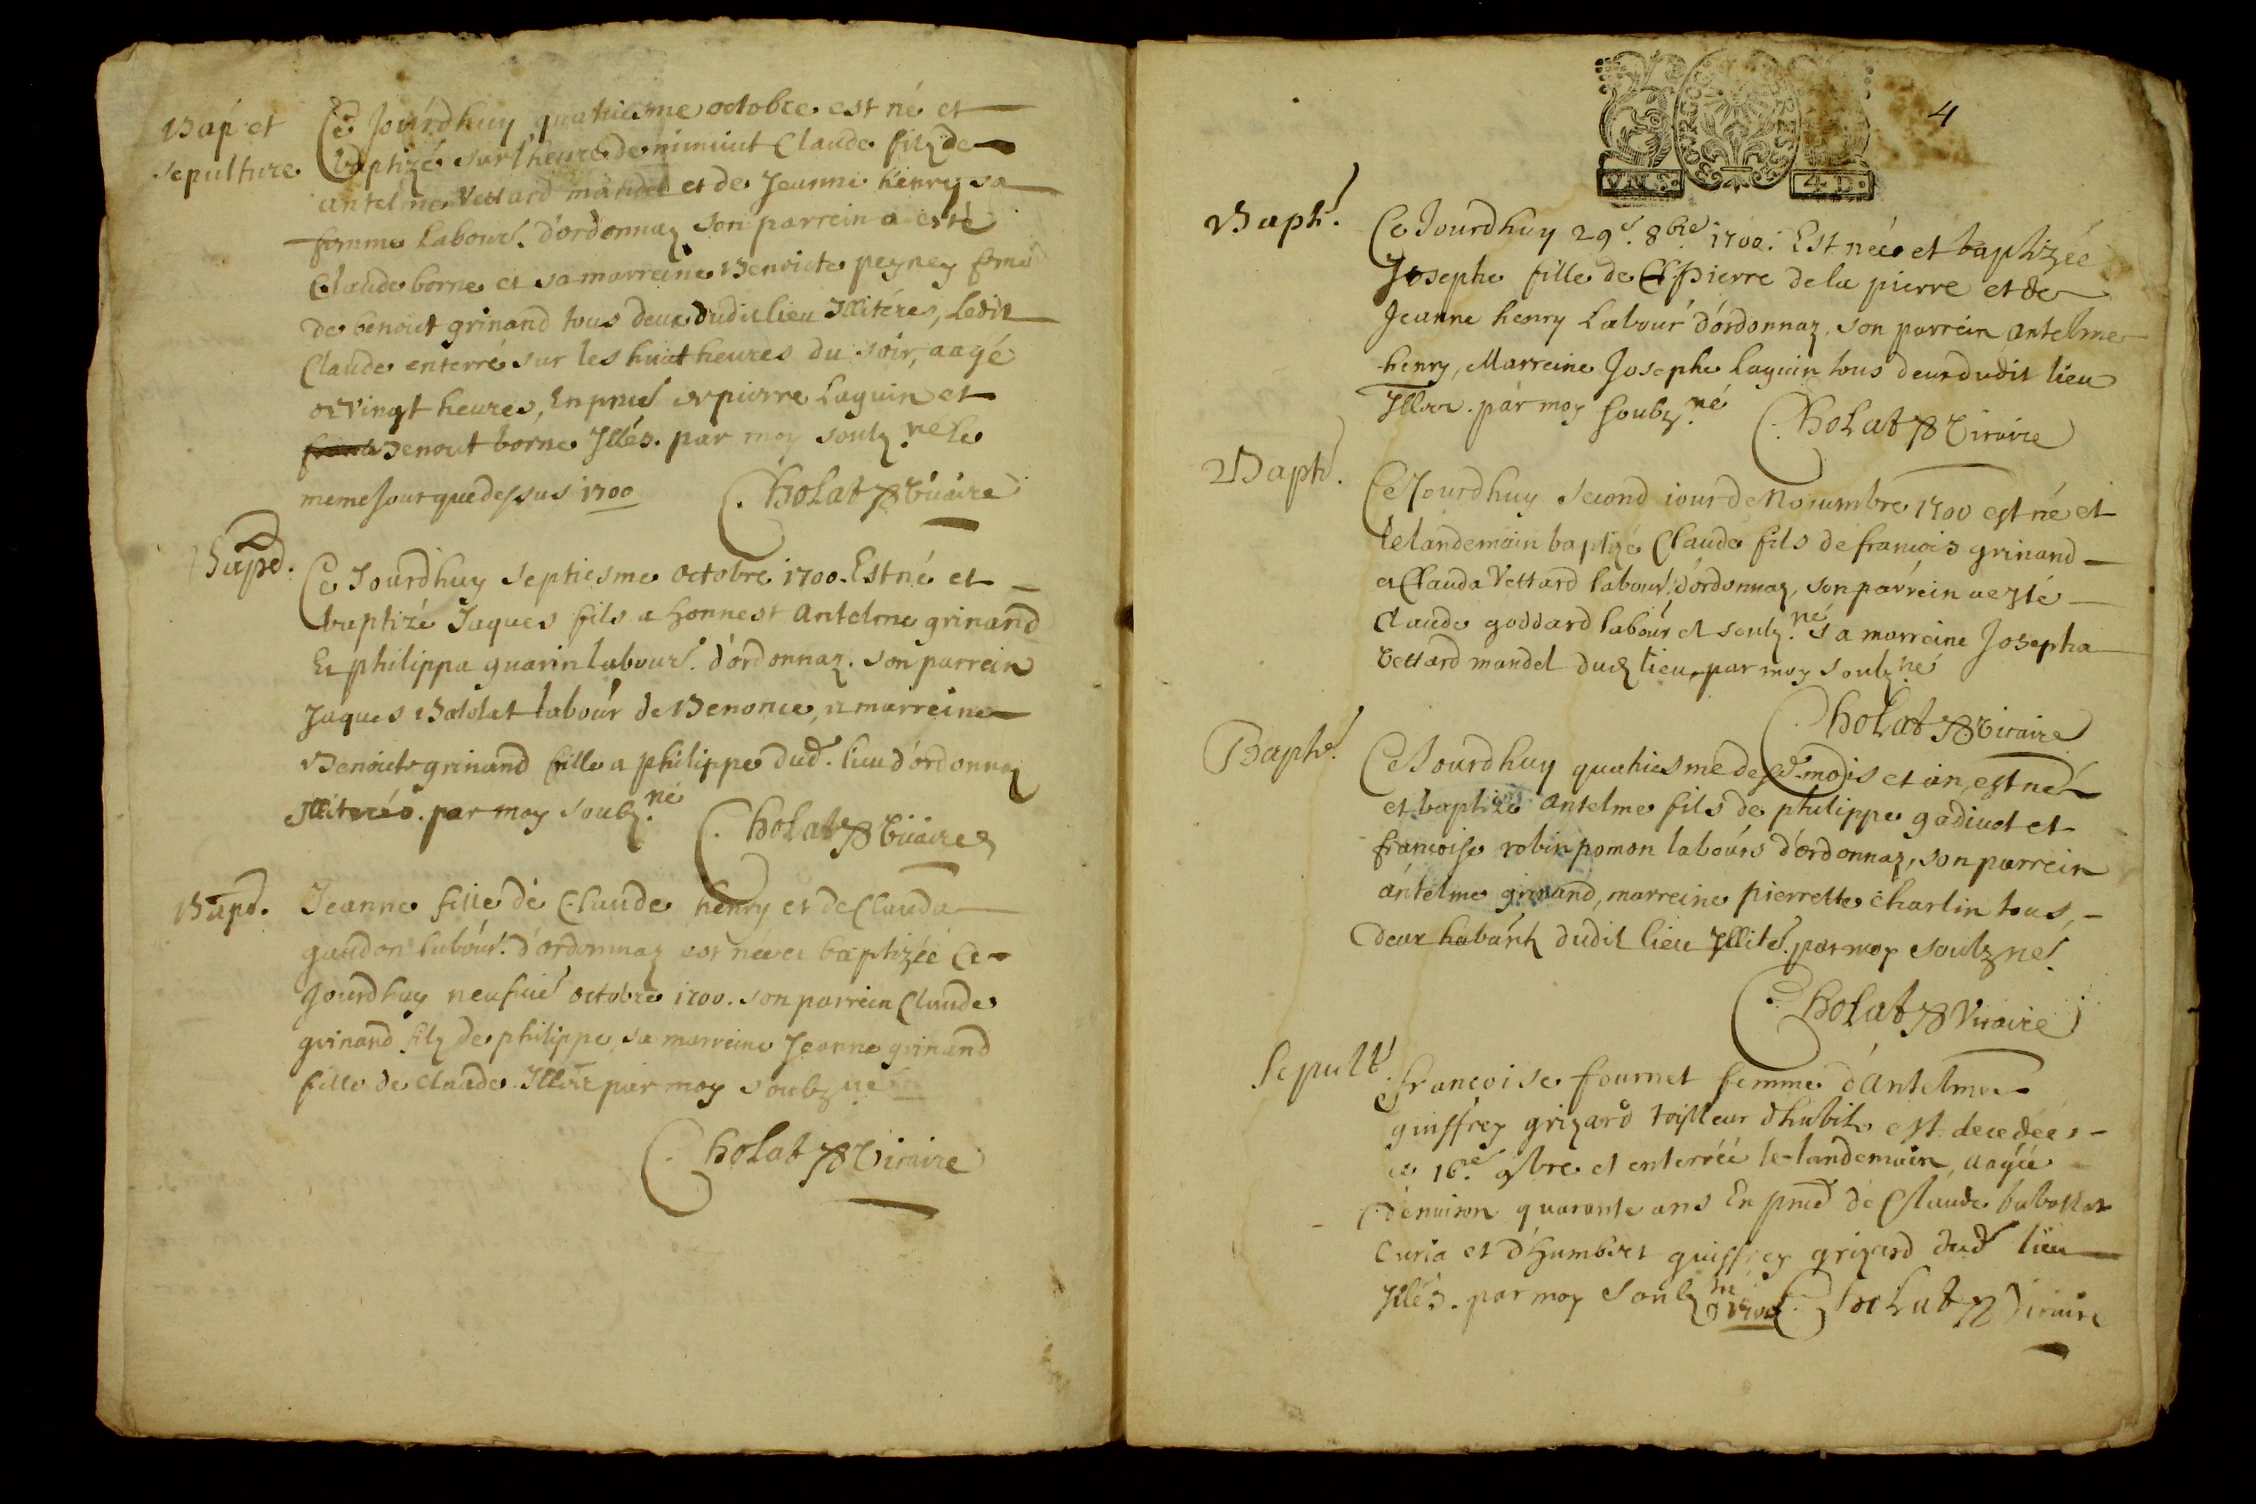 Bap et
sepulture
Ce Jourdhuy quatriesme octobre est né et
baptizé sur l'heure de minuit Claude filz de
antelme Vettard mandel et de Jeanne henry sa
femme Labour. d'ordonnaz son parrein a esté
Claude borne et sa marreine Benoicte peyney feme
de benoict grinand tous deux dudit lieu Illitéres, Ledit
Claude enterré sur les huict heures du soir, aagé
de vingt heures, En pnce de pierre Laguin et
Benoit borne Illés. par moy soulz.né le
meme Jour que dessus 1700
Cholat Vicaire
Bapt.
Ce Jourdhuy septiesme octobre 1700. Est né et
baptizé Jaques fils a honnest Antelme grinand
Et philippa guarin labour. d'ordonnaz. son parrein
Jaques Babolat labour de Benonce, et marreine
Benoicte grinand fille a philippe dud. lieu d'ordonnaz
Illiterés. par moy soulz.né
Cholat Vicaire
Bapt.
Jeanne fille de Claude henry et de Clauda
gaudon labour. d'ordonnaz est née et baptizée Ce
Jourdhuy neufie octobre 1700. son parrein Claude
grinand filz de philippe, sa marreine Jeanne grinand
fille de claude. Illitr par moy soubzné
Cholat Vicaire
4
VN S.
4 D.
Bapt.
Ce Jourdhuy 29e. 8bre 1700. Est née et baptizée
Josephe fille de Pierre de la pierre et de
Jeanne henry Labour d'ordonnaz, son parrein antelme
henry, Marreine Josephe Laguin tous deux dudit lieu
Illitr. par moy soubz.né
Cholat Vicaire
Bapt.
Ce Jourdhuy second iour de Novembre 1700 est né et
le landemain baptizé Claude fils de francois grinand
et Clauda Vettard labour. d'ordonnaz, son parrein a esté
Claude goddard labour et soulz.né sa marreine Josepha
Vettard mandel dud lieu, par moy soulz.né
Cholat Vicaire
Bapt.
Ce Jourdhuy quatriesme desd. mois et an, est né
et baptizé Antelme fils de philippe gadiuet et
francoise robin pomon labours d'ordonnaz, son parrein
antelme grinand, marreine pierrette charlin tous
deux habantz dudit lieu Illité. par moy soulzné.
Cholat Vicaire
Sepult.
francoise fournet femme d'Antelme
guiffrey grizard tailleur d'habit est decedée
ce 16e. 9bre et enterrée le landemain, aagée
d'enuiron quarante ans En pnce de Claude babollat
Curia et d'humbert guiffrey grizard dud lieu
Illés. par moy soulz né
1700 Cholat Vicaire